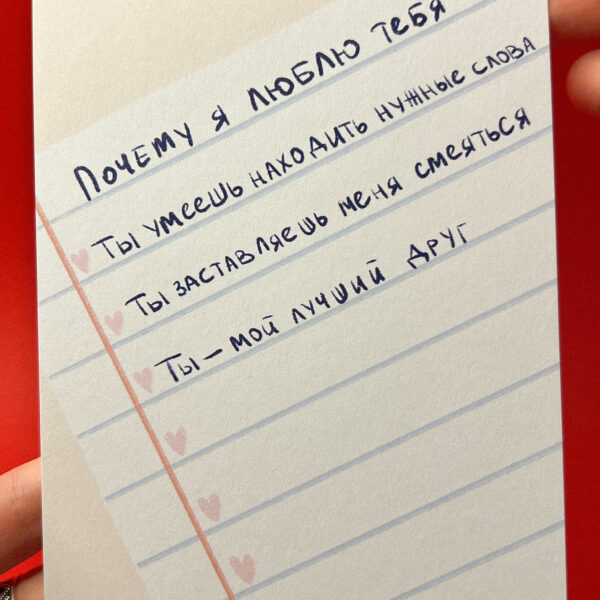 Почему я люблю тебя
Ты умеешь находить нужные слова
Ты заставляешь меня смеяться
Ты — мой лучший друг